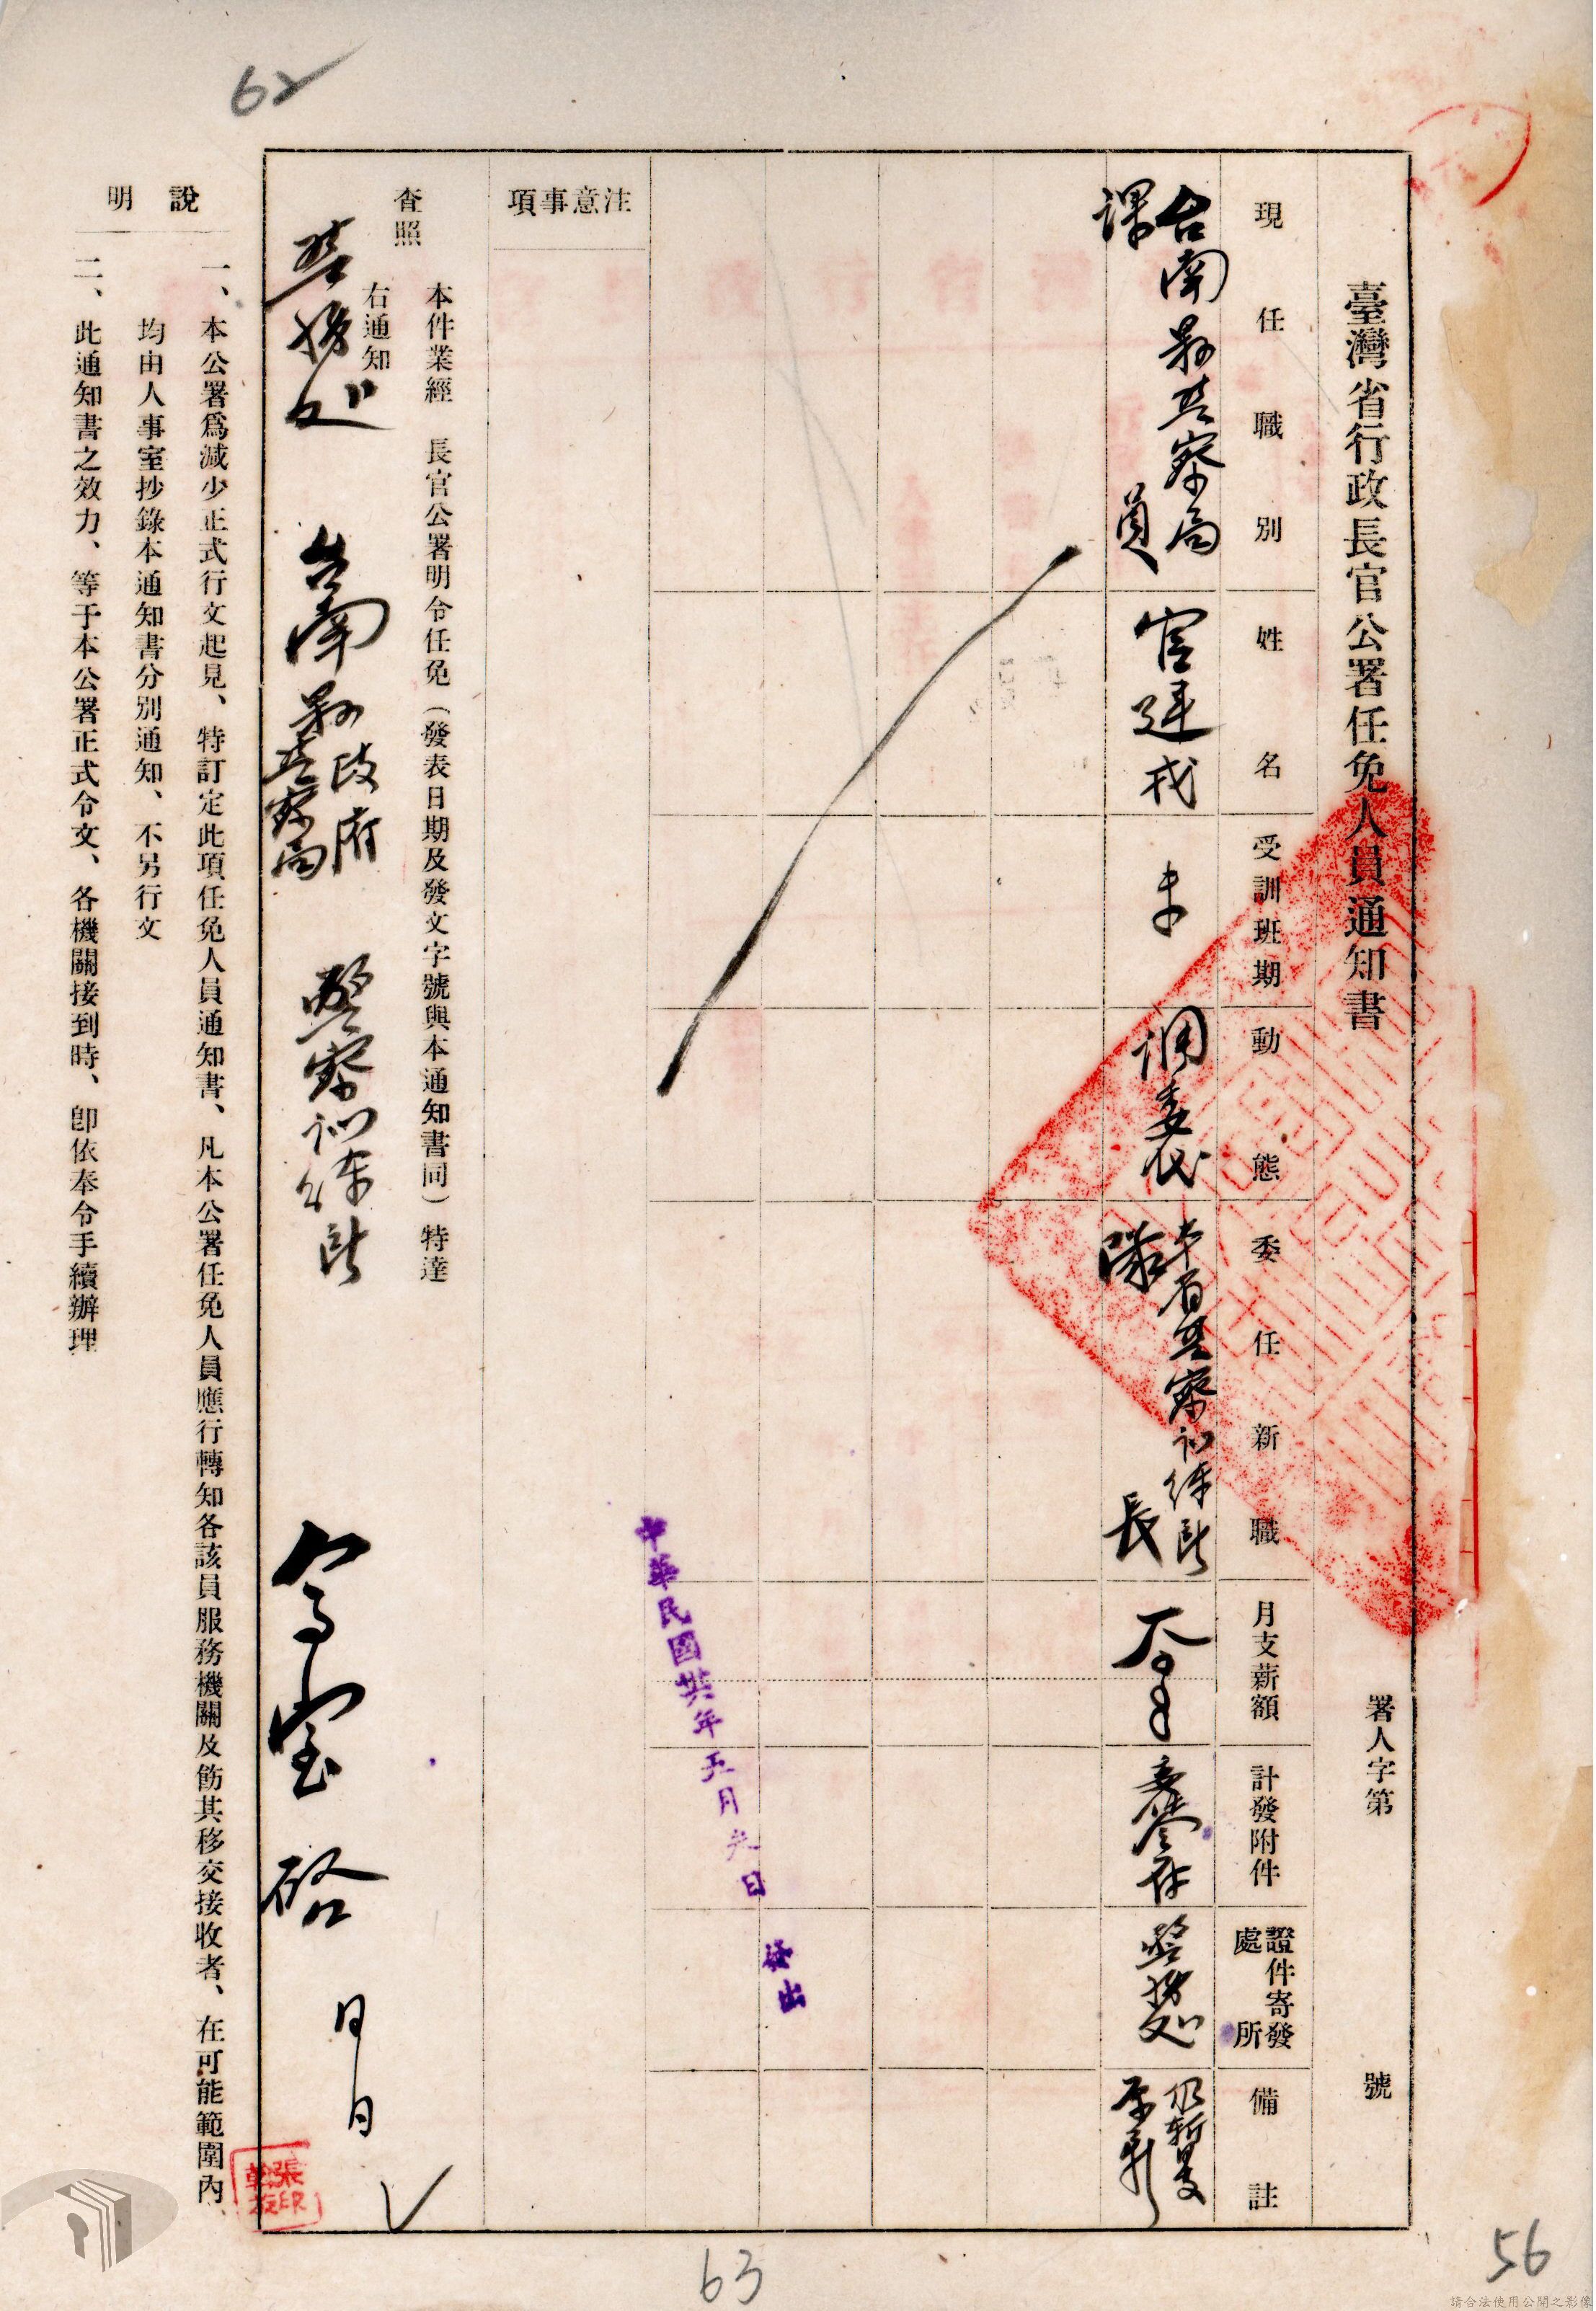 62
臺灣省行政長官公署任免人員通知書
署人字第 號
現任職別
姓名
受訓班期
動態
委任新職
月支薪額
計發附件
證件寄發處所
備註
台南縣警察局課員
官建
調委代
本省警察訓練所隊長
警務處
仍暫支原薪
中華民國卅六年五月 日
發出
注意事項
本件業經 長官公署明令任免(發表日期及發文字號與本通知書同)特達
查照
右通知
警務處 台南縣政府 警察局 警察訓練所
啓 月 日
張印
說明
一、本公署爲減少正式行文起見、特訂定此項任免人員通知書、凡本公署任免人員應行轉知各該員服務機關及飭其移交接收者、在可能範圍內、
均由人事室抄錄本通知書分別通知、不另行文
二、此通知書之效力、等于本公署正式令文、各機關接到時、卽依奉令手續辦理
63
56
請合法使用公開之影像